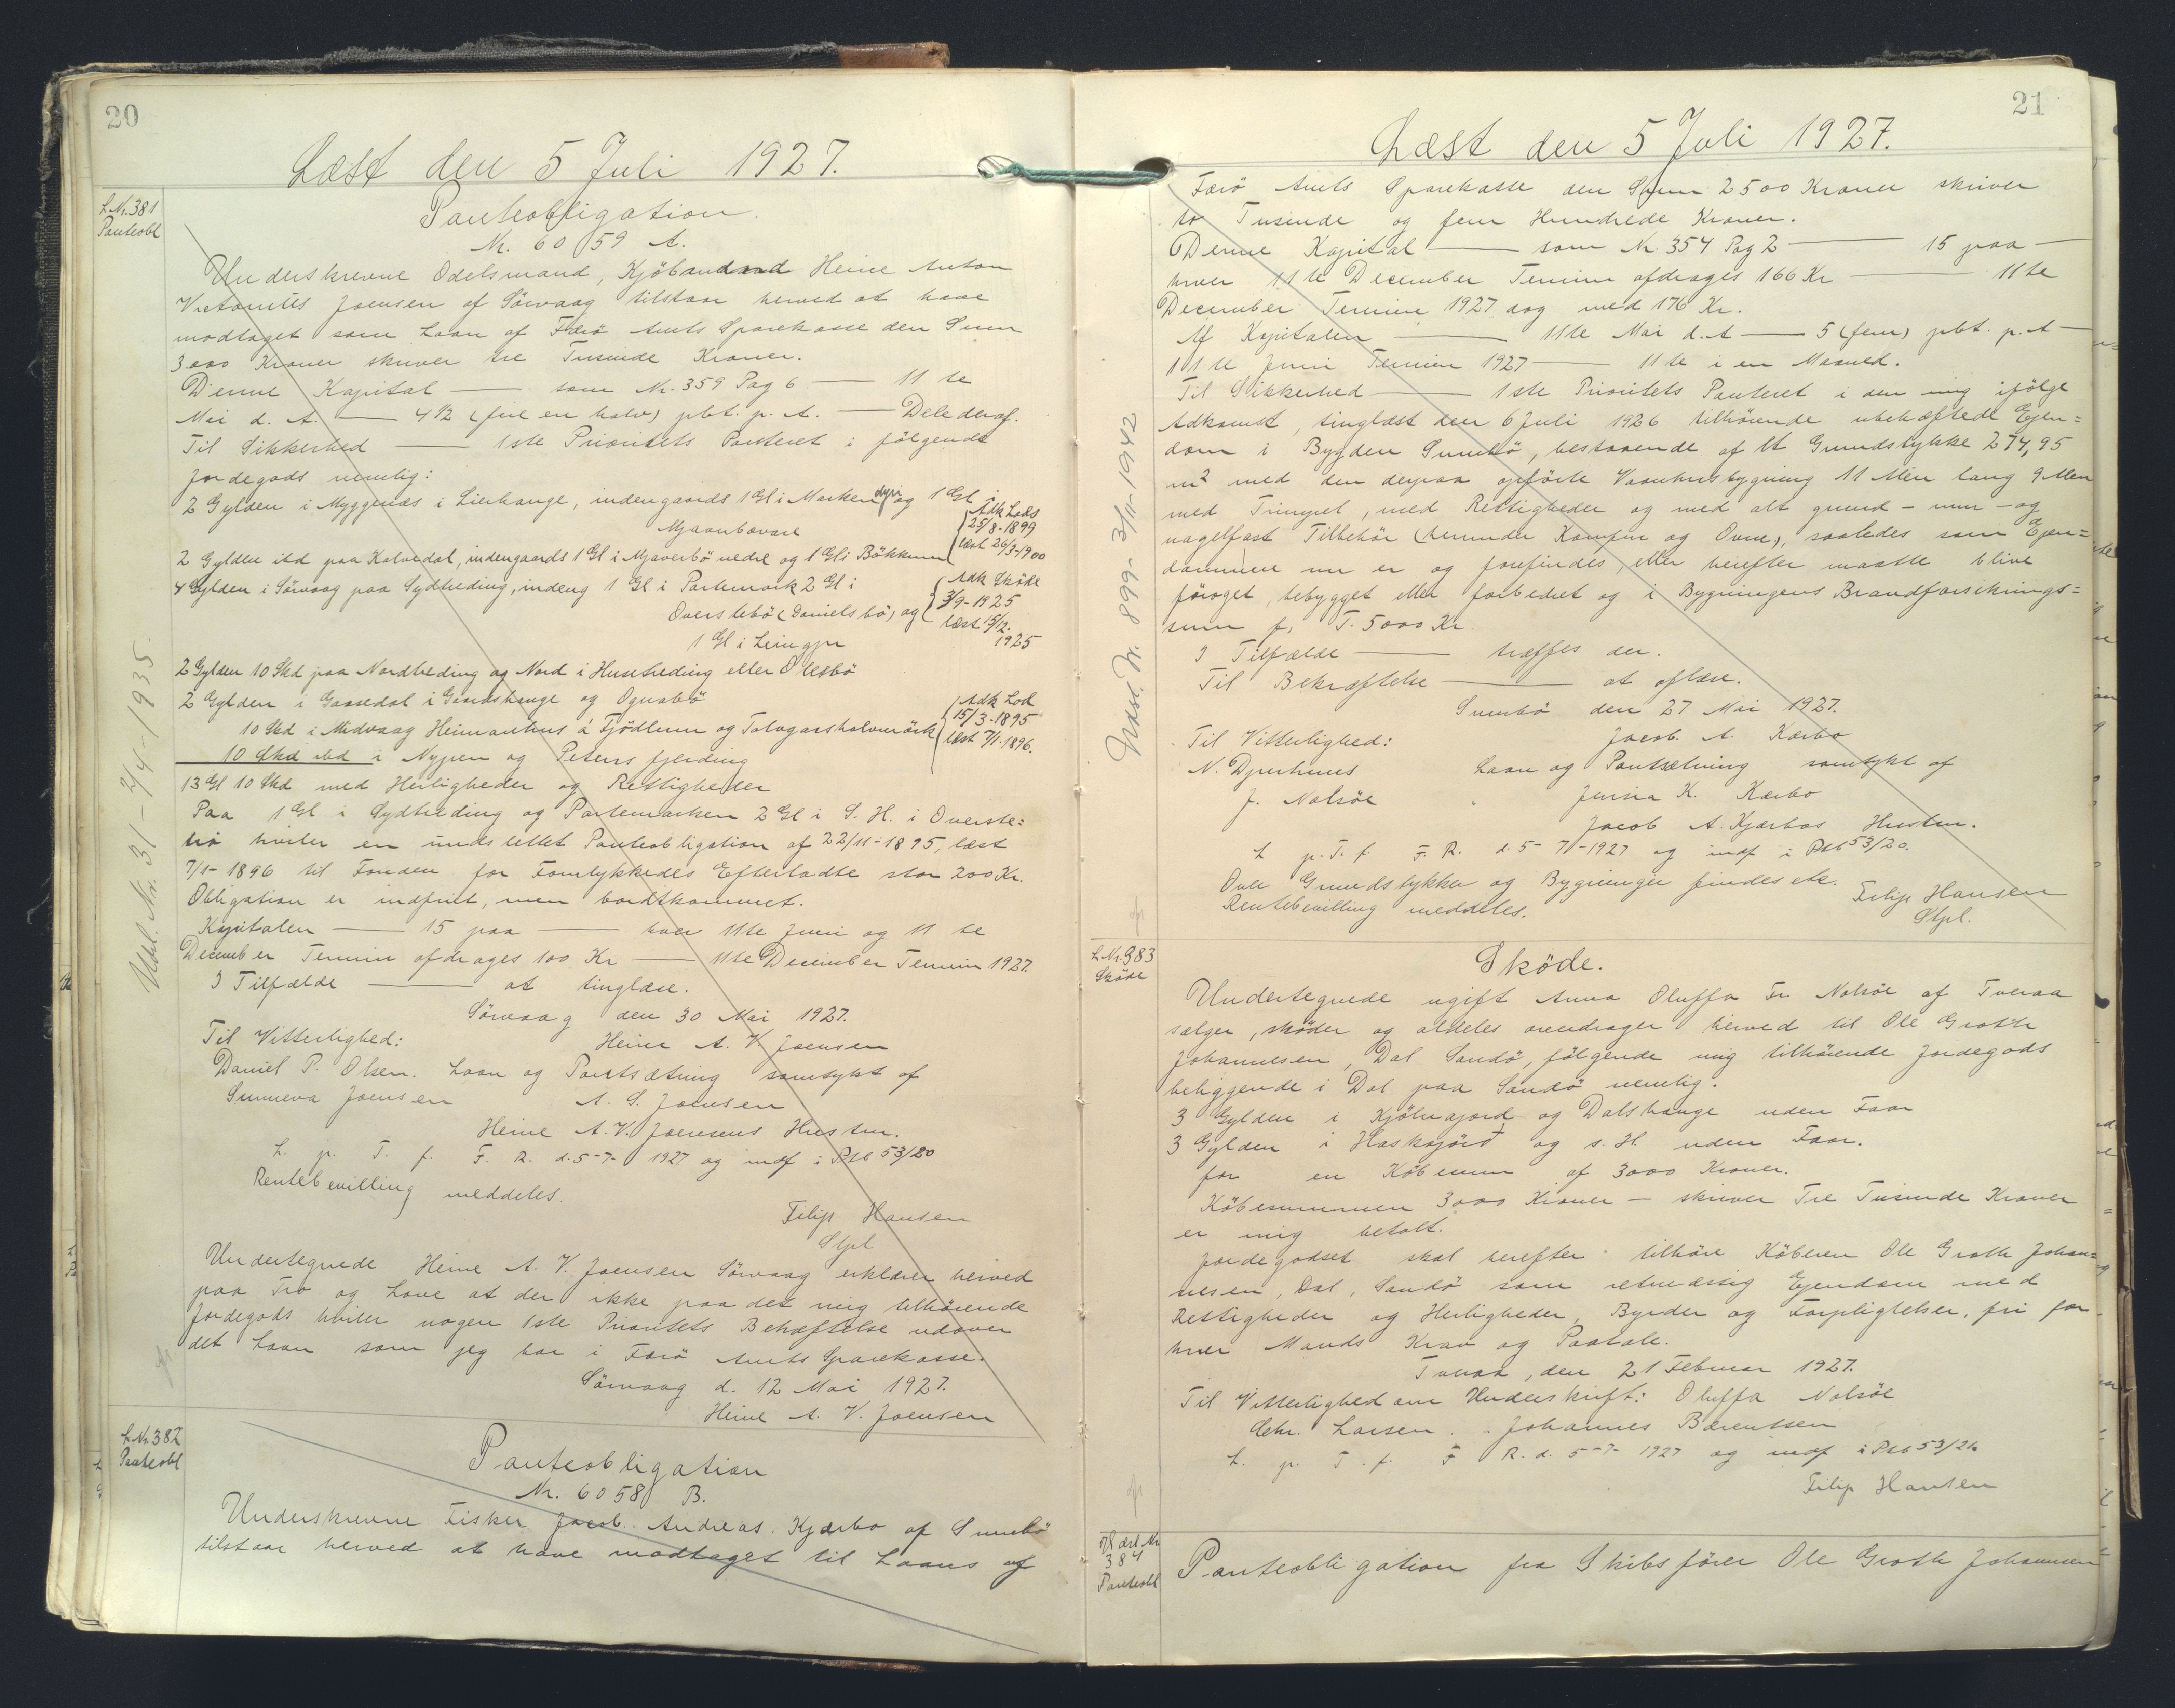 20
Læst den 5 Juli 1927.
L.Nr. 381
Panteobl
Panteobligation.
Nr. 6059 A.
Underskrevne Odelsmand, Kjøbmand Heine Anton
Joensen af Sörvaag tilstaar herved at have
modtaget som Laan af Færö Amts Sparekasse den Sum
3000 Kroner skriver tre Tusinde Kroner.
Denne Kapital — som Nr. 359 Pag 6 — 11 te
Mai d. A. — 4 1/2 (fire en halv) pbt. p. A. — Dele deraf.
Til Sikkerhed — 1ste Prioritets Panteret i følgende
Jordegods nemlig:
2 Gylden i Myggenæs i Lierhange, indengaards 1 Gl i Marken og 1 Gl i
{Adk Lods
25/8-1899
læst 26/3-1900
2 Gylden ibd paa Kalvedal, indengaards 1 Gl i nedre og 1 Gl i
4 Gylden i Sörvaag paa Sydtreding, indeng 1 Gl i Partemark 2 Gl i
Overstebö (Danielsbö) og
{Adk Sköde
3/9-1925
læst 15/12-
1925
1 Gl i
2 Gylden 10 Skd paa Nordtreding og Nord i Husetreding eller Olesbö
2 Gylden i Gaasedal i og Ognabö
10 Skd i Midvaag Heimanhus á Fjödlum og
{Adk Lod
15/3-1895
læst 7/1-1896.
10 Skd ibd i Nypen og Peters fjerding
13 Gl 10 Skd med Herligheder og Rettigheder
Paa 1 Gl i Sydtreding og Partemarken 2 Gl i S. H. i Overste=
bö hviler en Panteobligation af 22/11-1895, læst
7/1-1896 til Fonden for Forulykkedes Efterladte stor 200 Kr.
Obligation er indfriet, men bordtkommet.
Kapitalen — 15 paa — hver 11te Juni og 11 te
December Termin afdrages 100 Kr — 11te December Termin 1927.
I Tilfælde — at tinglæse.
Sörvaag den 30 Mai 1927.
Til Vitterlighed: Heine A. V. Joensen
Daniel P. Olsen. Laan og Pantsætning samtykt af
Sunneva Joensen A. S. Joensen
Heine A. V. Joensens Hustru.
L. p. T. f. F. R. d. 5-7-1927 og indf i Ptb 53/20
Rentebevilling meddeles.
Filip Hansen
Stpl
Undertegnede Heine A. V. Joensen Sörvaag erklærer herved
paa Tro og Love at der ikke paa det mig tilhørende
Jordegods hviler nogen 1ste Prioritets Behæftelse udover
det Laan som jeg har i Færö Amts Sparekasse.
Sörvaag d. 12 Mai 1927.
Heine A. V. Joensen
Udsl. Nr. 31 - 2/4-1935
L.Nr 382
Panteobl
Panteobligation
Nr. 6058 B.
Underskrevne Fisker Jacob Andreas Kjærbo af Sumbö
tilstaar herved at have modtaget til Laans af
21
Læst den 5 Juli 1927.
Færö Amts Sparekasse den Sum 2500 Kroner skriver
to Tusinde og fem Hundrede Kroner.
Denne Kapital — som Nr. 354 Pag 2 — 15 paa —
hver 11 te December Termin afdrages 166 Kr — 11te
December Termin 1927 dog med 176 Kr.
Af Kapitalen — 11te Mai d. A — 5 (fem) pbt. p. A —
11 te Juni Termin 1927 — 11te i en Maaned.
Til Sikkerhed — 1ste Prioritets Panteret i den mig ifølge
Adkomst, tinglæst den 6 Juli 1926 tilhörende ubehæftede Ejen=
dom i Bygden Sumbö, bestaaende af Et Grundstykke 274,95
m² med den derpaa opførte Vaanhusbygning 11 Alen lang 9 Alen
med Tringret, med Rettigheder og med alt grund- mur- og
nagelfast Tilbehör (herunder Komfur og Ovne), saaledes som Ejen=
dommen nu er og forefindes, eller herefter maatte blive
forøget, bebygget eller forbedret og i Bygningens Brandforsikrings=
sum p. T. 5000 Kr.
I Tilfælde — træffes der.
Til Bekræftelse — at aflæse.
Sumbö den 27 Mai 1927.
Til Vitterlighed: Jacob A. Kærbo
N. Djurhuus Laan og Pantsætning samtykt af
J. Nolsöe K. Kærbo
Jacob A. Kjærbos Hustru.
L p. T. f. F. R. d. 5-7-1927 og indf i Ptb 53/20.
Over Grundstykker og Bygninger findes etc.
Rentebevilling meddeles. Filip Hansen
Stpl.
Udsl. Nr. 899- 3/11-1942
L.Nr 383
Sköde
Sköde.
Undertegnede ugift Anna Oluffa Fr. Nolsöe af Tveraa
sælger, skøder og aldeles overdrager herved til Ole Groth
Johannesen, Dal Sandö, følgende mig tilhørende Jordegods
beliggende i Dal paa Sandö nemlig.
3 Gylden i og Dalshauge uden Faar
3 Gylden i og s. H uden Faar.
for en Købesum af 3000 Kroner.
Købesummen 3000 Kroner — skriver Tre Tusinde Kroner
er mig betalt.
Jordegodset skal herefter tilhöre Köberen Ole Groth Johan=
nesen, Dal, Sandö som retmæssig Ejendom med
Rettigheder og Herligheder, Byrder og Forpligtelser, fri for
hver Mands Krav og Paatale.
Tveraa, den 21 Februar 1927.
Til Vitterlighed om Underskrift: Oluffa Nolsöe
Chr. Larsen. Johannes Bærentsen
L. p. T. f. F R. d. 5-7-1927 og indf i Ptb 53/21.
Filip Hansen
384
Panteobl
Panteobligation fra Skibsfører Ole Groth Johannesen